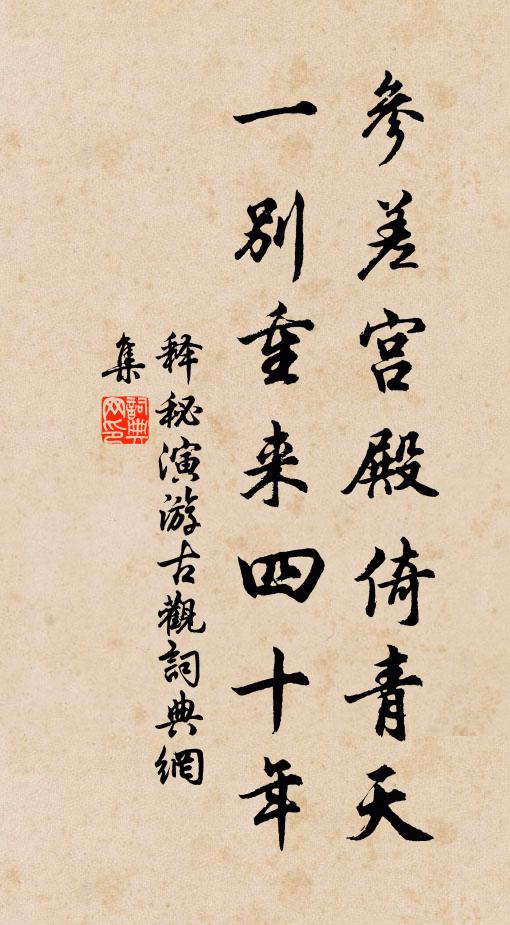 參差宫殿倚青天
一别重来四十年
释秘演游古觀詞典網
集
詞典网印